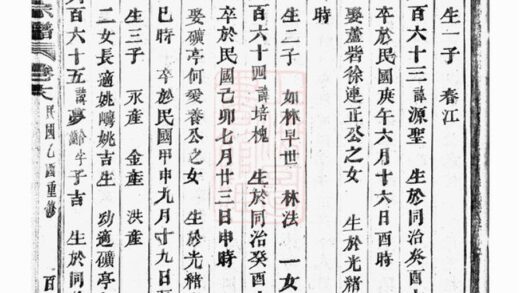 生一子 春江
百六十三諱源聖 生於同治癸酉
卒於民國庚午六月十六日酉時
娶蘆砦徐連正公之女 生於光緒
時
生二子 如林早世 林法 一女
百六十四諱培槐 生於同治癸酉
卒於民國己卯七月廿三日申時
娶礦亭何愛善公之女 生於光緒
巳時 卒於民國甲申九月十九日
生三子 永產 金產 洪產
二女長適姚嶹姚吉生 幼適礦亭
百六十五諱夢齡字子吉 生於同
民國乙酉重修
百